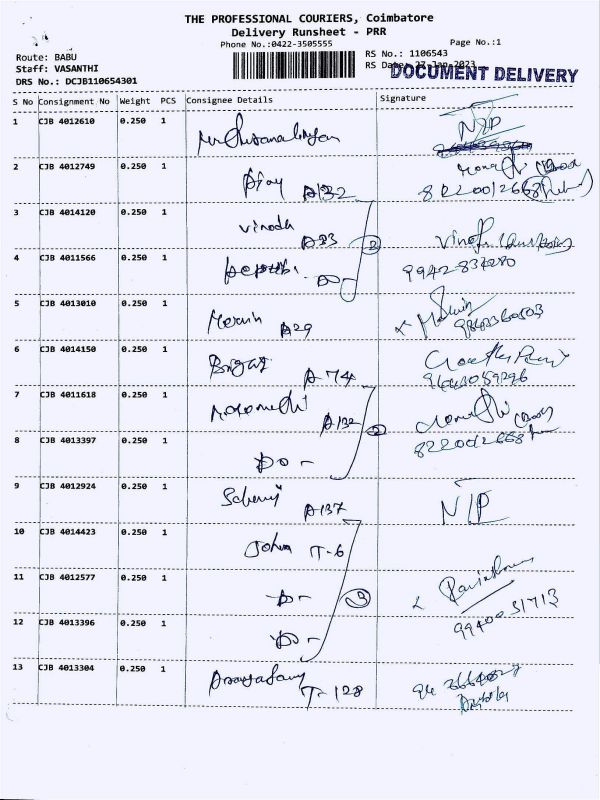 THE PROFESSIONAL COURIERS, Coimbatore
Delivery Runsheet - PRR
Phone No.:0422-3505555
Page No.:1
Route: BABU
RS No.: 1106543
Staff: VASANTHI
RS Date: 27-Jan-2023
DRS No.: DCJB110654301
DOCUMENT DELIVERY
S No Consignment No Weight PCS Consignee Details Signature
1 CJB 4012610 0.250 1 N/P
2 CJB 4012749 0.250 1 Ajay A132
8220012668
3 CJB 4014120 0.250 1 Vinoth A33 2
4 CJB 4011566 0.250 1 Do- 9942834280
5 CJB 4013010 0.250 1 A29
6 CJB 4014150 0.250 1 A-74
9643059296
7 CJB 4011618 0.250 1 A132 2
8220012668
8 CJB 4013397 0.250 1 Do -
9 CJB 4012924 0.250 1 A137 N/P
10 CJB 4014423 0.250 1 John T-6
11 CJB 4012577 0.250 1 Do - 3
9940031713
12 CJB 4013396 0.250 1 Do -
13 CJB 4013304 0.250 1 T-128